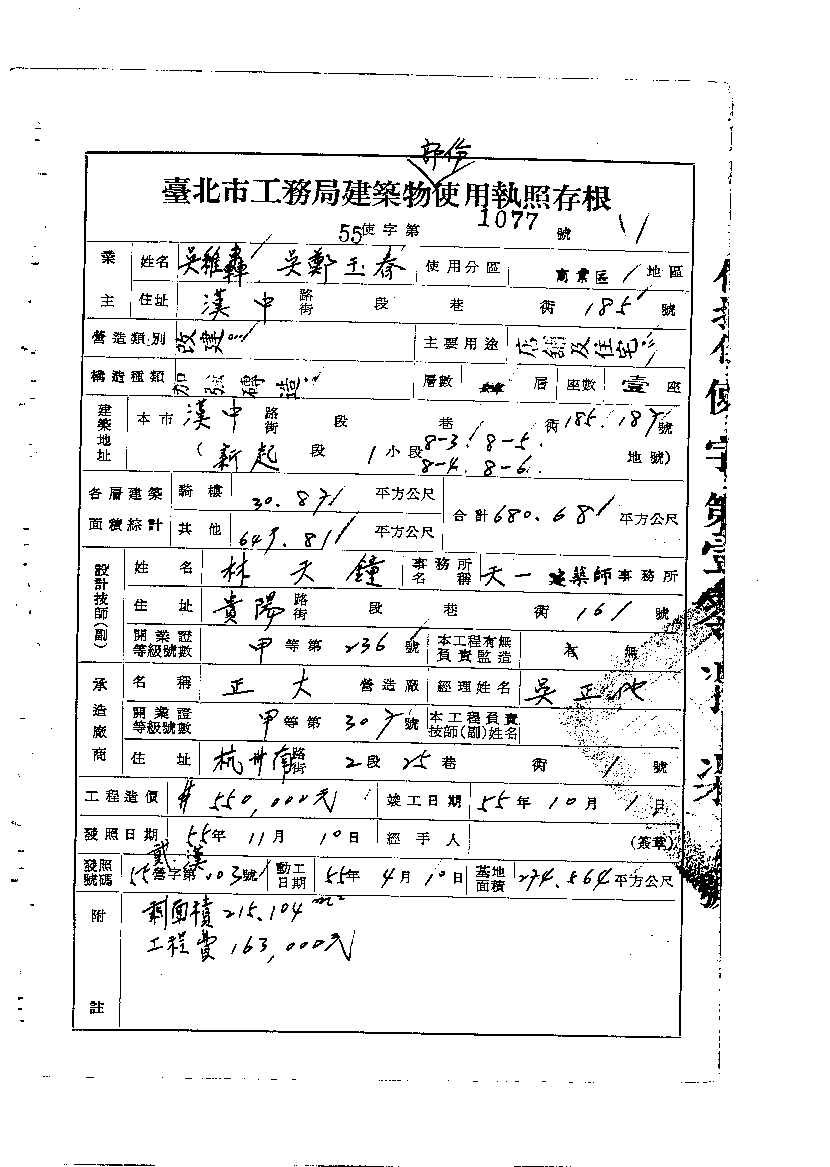 部份
臺北市工務局建築物使用執照存根
55使字第1077號
業主 姓名 吳鄭玉 使用分區 商業區 地區
住址 漢中 路街 段 巷 街 185 號
營造類別 改建 主要用途 店鋪及住宅
構造種類 加強磚造 層數 層 座數 壹 座
建築地址 本市 漢中 路街 段 巷 街 185. 187 號
(新起 段 1 小段 8-3. 8-5. 8-4. 8-6. 地號)
各層建築面積綜計 騎樓 30.87 平方公尺 合計 680.68 平方公尺
其他 649.81 平方公尺
設計技師(副) 姓名 林天鐘 事務所名稱 天一建築師事務所
住址 貴陽 路街 段 巷 街 161 號
開業證等級號數 甲等第236號 本工程有無負責監造 無
承造廠商 名稱 正大 營造廠 經理姓名 吳正
開業證等級號數 甲等第 號 本工程負責技師(副)姓名
住址 杭州南 路街 2段 25巷 街 1 號
工程造價 550,000元 竣工日期 55年10月1日
發照日期 55年11月10日 經手人 (簽章)
發照號碼 55營字第 103號 動工日期 55年4月10日 基地面積 274.564平方公尺
附註 剩面積215.104m²
工程費163,000元